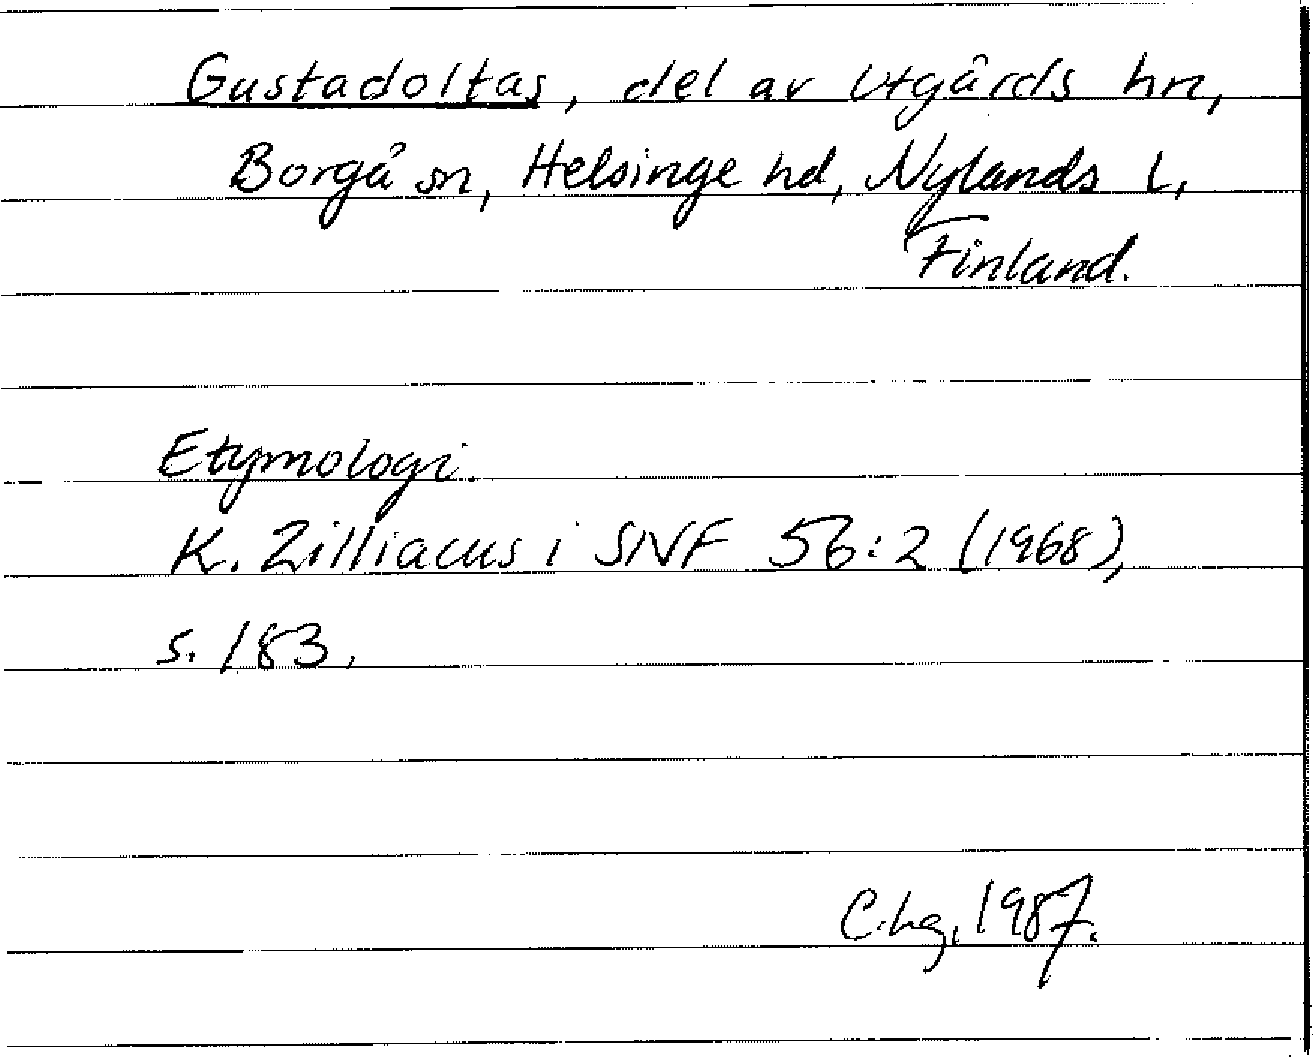 Gustadoltas, del av Utgårds hn,
Borgå sn, Helsinge hd, Nylands l,
Finland.
Etymologi.
K. Zilliacus i SNF 56:2 (1968),
s. 183.
C.hg, 1987.